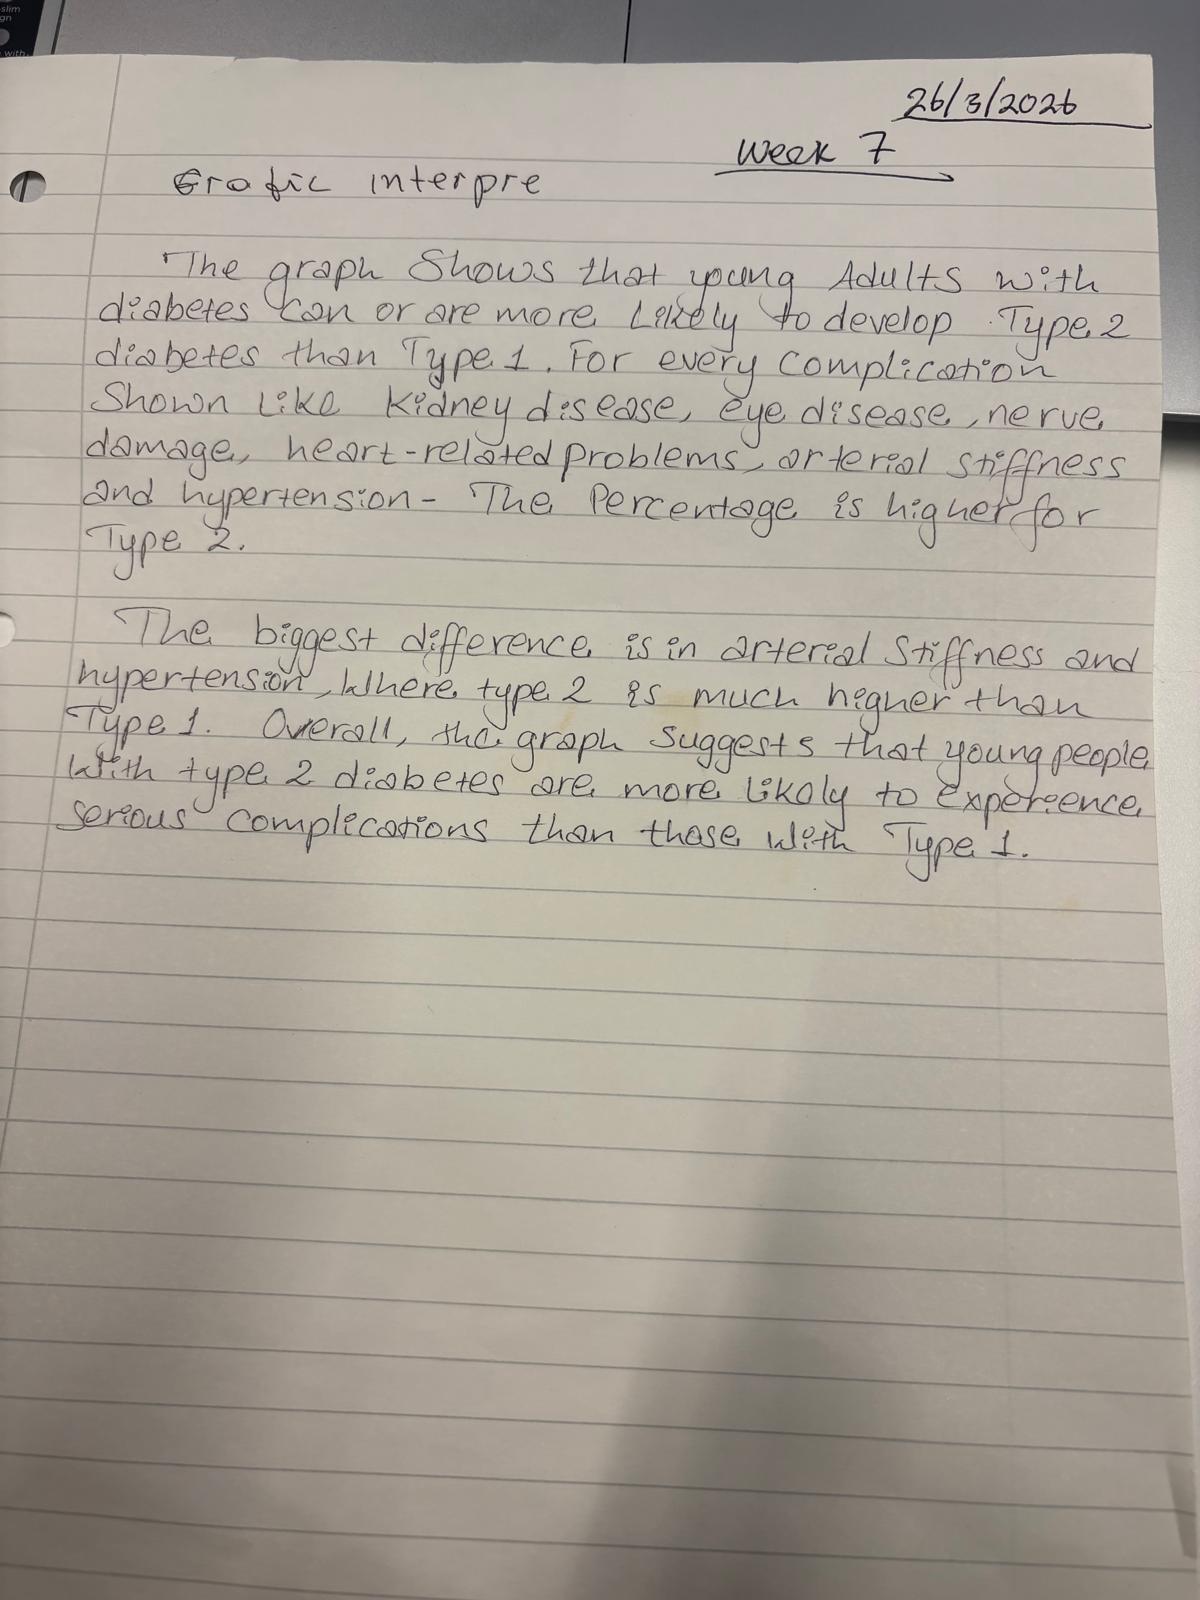 slim
gn
with
26/3/2026
Week 7
Grafic interpre
The graph Shows that young Adults with
diabetes can or are more Likely to develop Type 2
diabetes than Type 1. For every complication
Shown Like Kidney disease, eye disease, nerve
damage, heart-related problems, arterial stiffness
and hypertension - The Percentage is higher for
Type 2.
The biggest difference is in arterial Stiffness and
hypertension, Where type 2 is much higher than
Type 1. Overall, the graph suggests that young people
With type 2 diabetes are more likely to expereence
serious complications than those with Type 1.